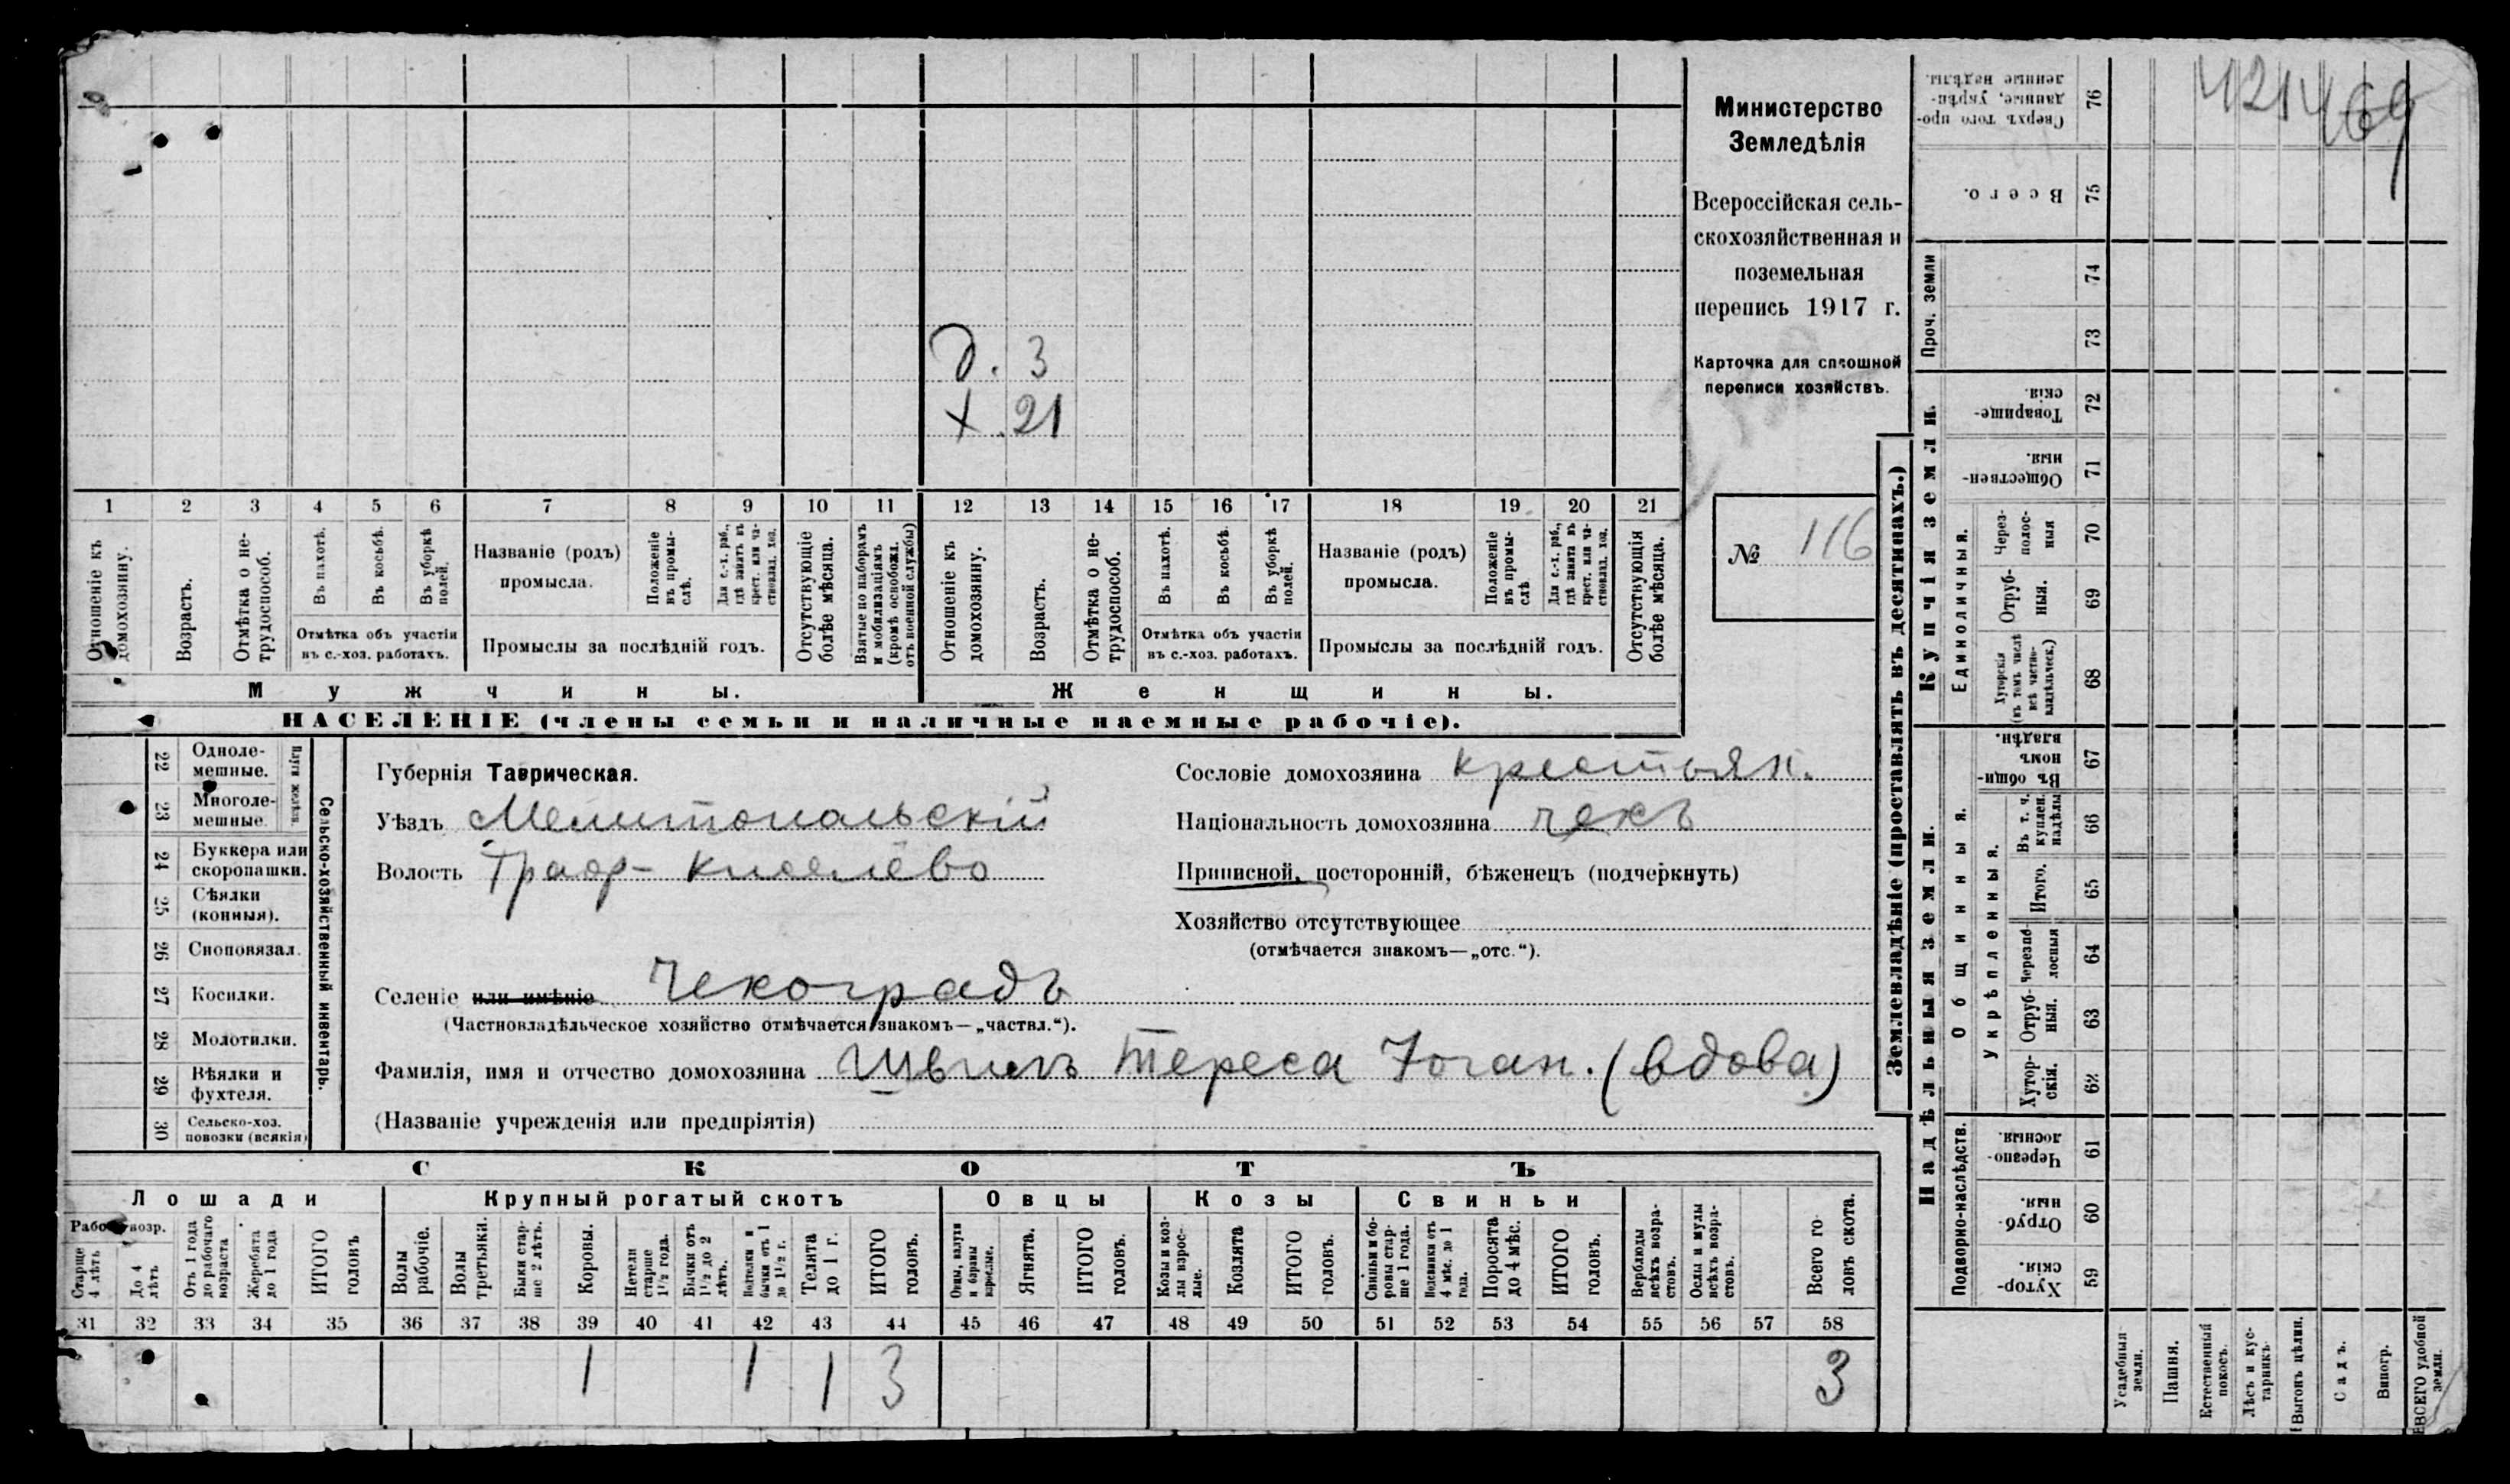 Министерство
Земледѣлія
Всероссійская сель-
скохозяйственная и
поземельная
перепись 1917 г.
Карточка для сплошной
переписи хозяйствъ.
№ 116
д. 3
х. 21
1 2 3 4 5 6 7 8 9 10 11 12 13 14 15 16 17 18 19 20 21
Отношеніе къ домохозяину.
Возрастъ.
Отмѣтка о не-трудоспособ.
Въ пахотѣ.
Въ косьбѣ.
Въ уборкѣ полей.
Отмѣтка объ участіи
въ с.-хоз. работахъ.
Названіе (родъ)
промысла.
Положеніе въ промы-слѣ.
Для с.-х. раб., гдѣ занятъ въ крест. или ча-стновлад. хоз.
Промыслы за послѣдній годъ.
Отсутствующіе болѣе мѣсяца.
Взятые по наборамъ и мобилизаціямъ (кромѣ освобожд. отъ военной службы)
Отношеніе къ домохозяину.
Возрастъ.
Отмѣтка о не-трудоспособ.
Въ пахотѣ.
Въ косьбѣ.
Въ уборкѣ полей.
Отмѣтка объ участіи
въ с.-хоз. работахъ.
Названіе (родъ)
промысла.
Положеніе въ промы-слѣ.
Для с.-х. раб., гдѣ занята въ крест. или ча-стновлад. хоз.
Промыслы за послѣдній годъ.
Отсутствующія болѣе мѣсяца.
Мужчины.
Женщины.
НАСЕЛЕНІЕ (члены семьи и наличные наемные рабочіе).
22 Одноле-
мешные.
23 Многоле-
мешные.
Плуги желѣзн.
24 Буккера или
скоропашки.
25 Сѣялки
(конныя).
26 Сноповязал.
27 Косилки.
28 Молотилки.
29 Вѣялки и
фухтеля.
30 Сельско-хоз.
повозки (всякія)
Сельско-хозяйственный инвентарь.
Губернія Таврическая.
Уѣздъ Мелитопольскій
Волость Граф-Киселёво
Селеніе или имѣніе Чекоградъ
(Частновладѣльческое хозяйство отмѣчается знакомъ—„частвл.“).
Фамилія, имя и отчество домохозяина Тереса Іоган. (вдова)
(Названіе учрежденія или предпріятія)
Сословіе домохозяина крестьян.
Національность домохозяина чехъ
Приписной, посторонній, бѣженецъ (подчеркнуть)
Хозяйство отсутствующее
(отмѣчается знакомъ—„отс.“).
СКОТЪ
Лошади
Крупный рогатый скотъ
Овцы
Козы
Свиньи
Рабоч. возр.
Старше 4 лѣтъ
До 4 лѣтъ
Отъ 1 года до рабочаго возраста
Жеребята до 1 года
ИТОГО головъ
Волы рабочіе.
Волы третьяки.
Быки стар-ше 2 лѣтъ.
Коровы.
Нетели старше 1½ года.
Бычки отъ 1½ до 2 лѣтъ.
Подтелки и бычки отъ 1 до 1½ г.
Телята до 1 г.
ИТОГО головъ.
Овцы, валухи и бараны взрослые.
Ягнята.
ИТОГО головъ.
Козы и коз-лы взрос-лые.
Козлята
ИТОГО головъ.
Свиньи и бо-ровы стар-ше 1 года.
Подсвинки отъ 4 мѣс. до 1 года.
Поросята до 4 мѣс.
ИТОГО головъ.
Верблюды всѣхъ возра-стовъ.
Ослы и мулы всѣхъ возра-стовъ.
Всего го-ловъ скота.
31 32 33 34 35 36 37 38 39 40 41 42 43 44 45 46 47 48 49 50 51 52 53 54 55 56 57 58
1 1 1 3 3
Землевладѣніе (проставлять въ десятинахъ.)
Купчія земли.
Надѣльныя земли.
Проч. земли
Единоличныя.
Общинныя.
Укрѣпленныя.
Подворно-наслѣдств.
Сверхъ того про-данные, укрѣп-ленные надѣлы. 76
Всего. 75
74
73
Товарище-скія 72
Обществен-ныя. 71
Через-полос-ныя 70
Отруб-ныя. 69
Хуторскія (въ томъ числѣ всѣ частно-владѣльческ.) 68
Въ общин-номъ владѣн. 67
Въ т. ч. куплен. надѣлы 66
Итого. 65
Черезпо-лосныя 64
Отруб-ныя. 63
Хутор-скія. 62
Черезпо-лосныя. 61
Отруб-ныя. 60
Хутор-скія. 59
Усадебныя земли.
Пашня.
Естественный покосъ.
Лѣсъ и кус-тарникъ.
Выгонъ цѣлин.
Садъ.
Виногр.
ВСЕГО удобной земли.